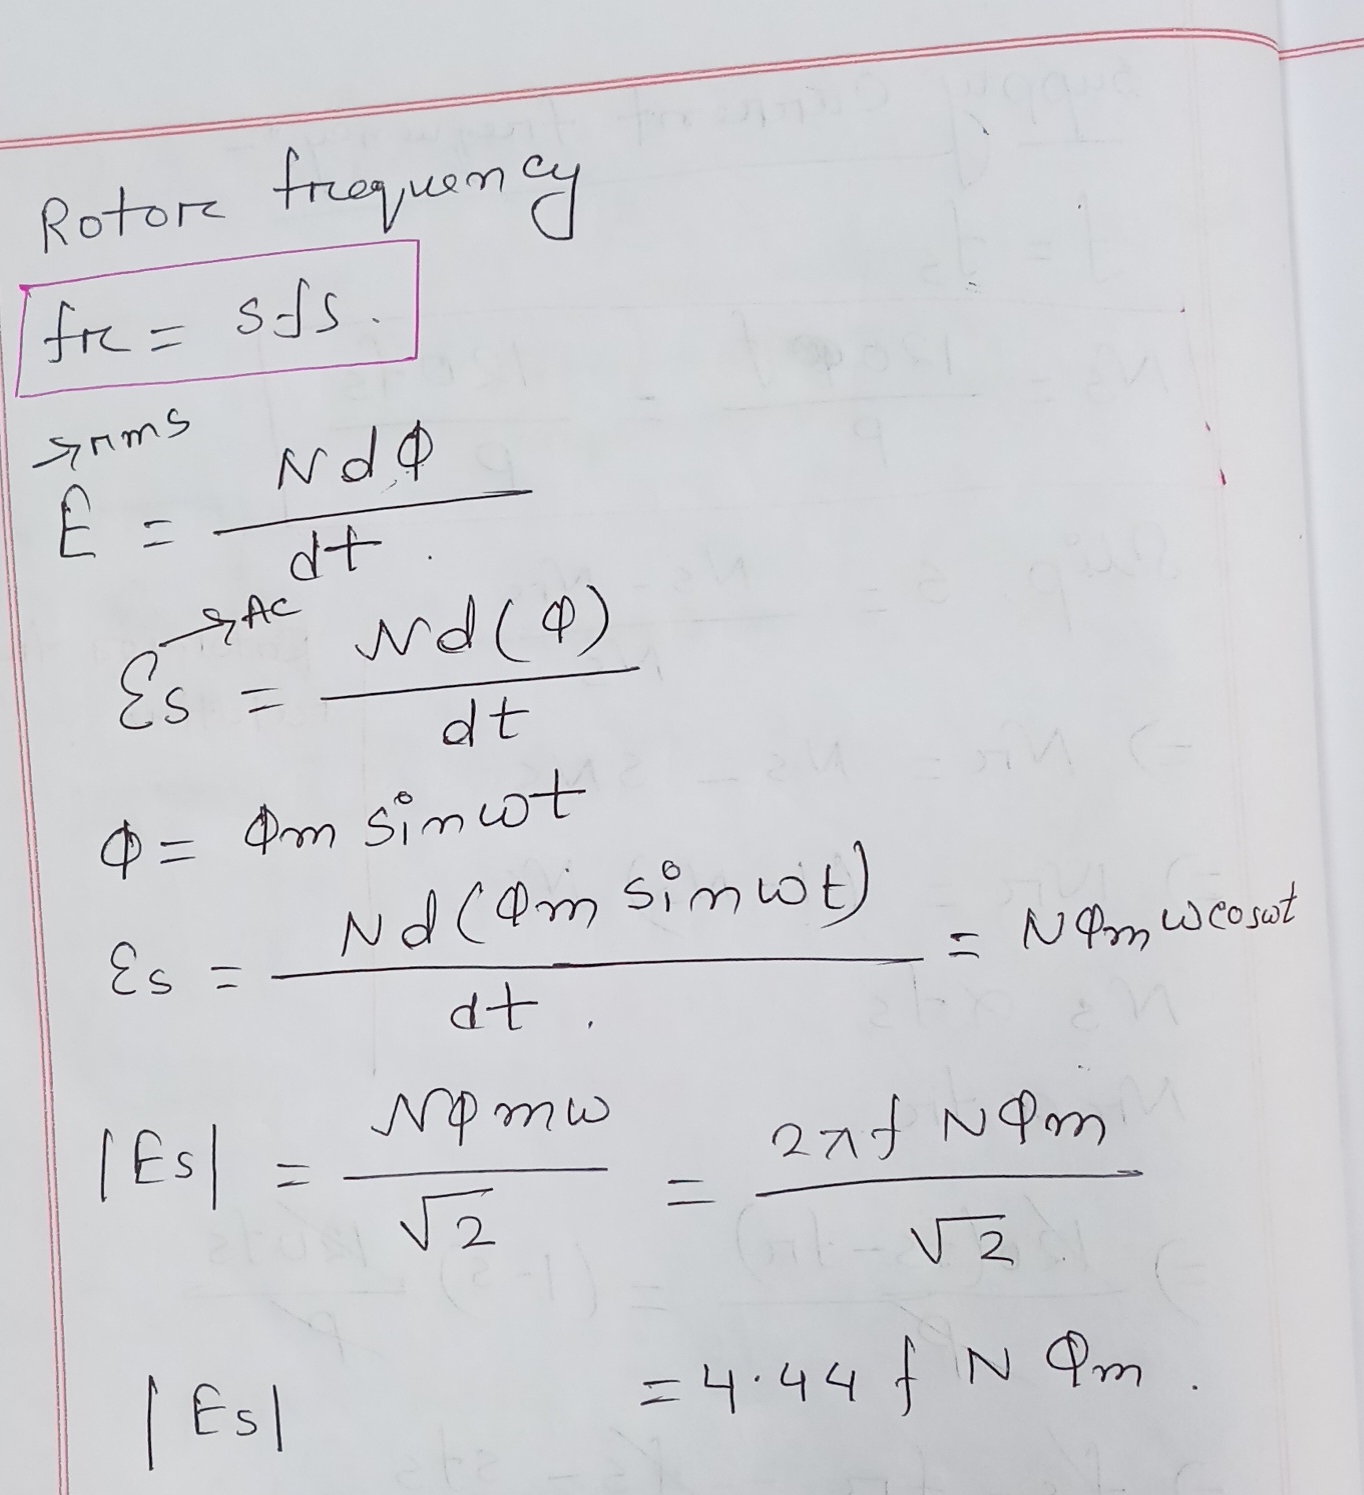 Rotor frequency
fr = sfs.
→ rms
E = Ndφ / dt.
→ AC
Es = Nd(φ) / dt
φ = φm sinωt
Es = Nd(φm sinωt) / dt. = Nφm ωcosωt
|Es| = Nφmω / √2 = 2πf Nφm / √2
|Es| = 4.44 f N φm.